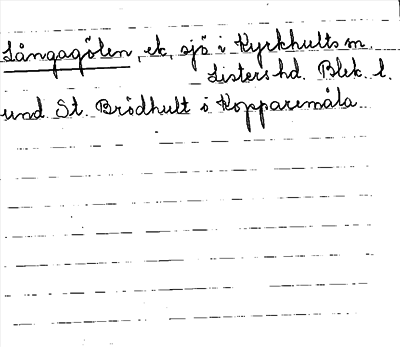 Långagölen, ek, sjö i Kyrkhults sn.
Listers hd. Blek. l.
und St. Brödhult o. Kopparemåla.